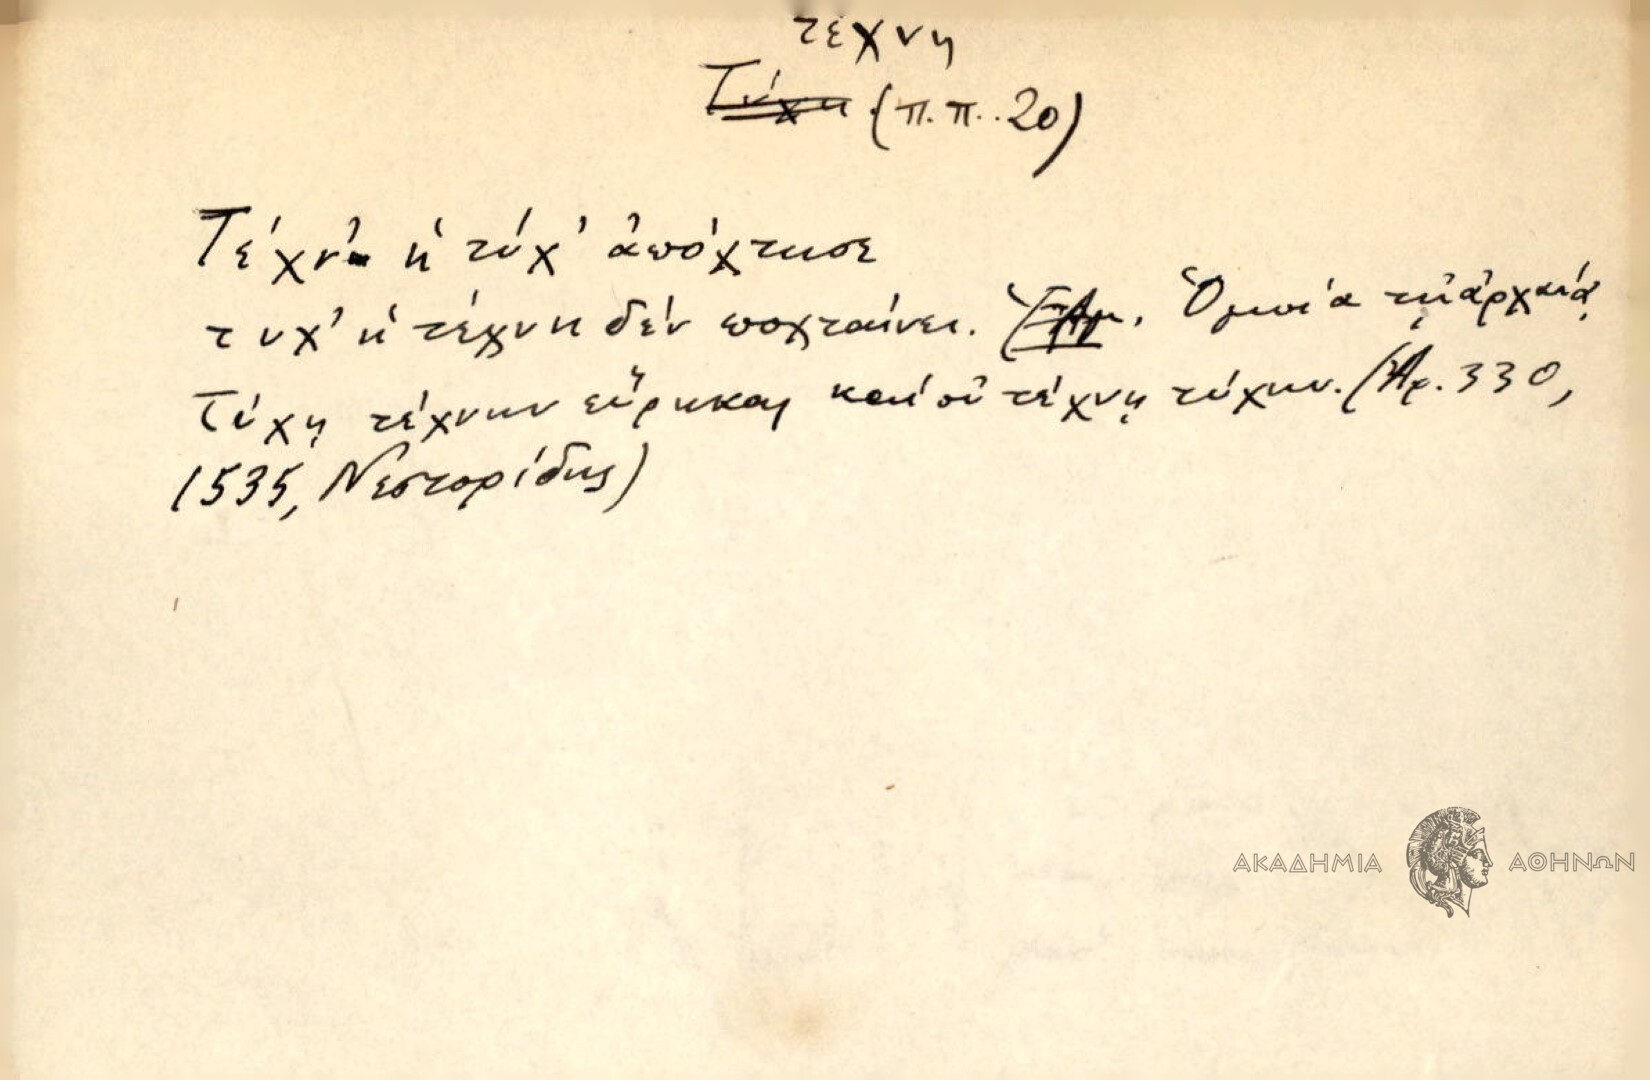 τέχνη
Τύχη (π.π..20)
Τέχν' ἡ τύχ' ἀπόχτησε
τυχ' ἡ τέχνη δέν ποχταίνει. Ὁμοία τῇ ἀρχαίᾳ
Τύχῃ τέχνην εὕρηκας καί οὐ τέχνῃ τύχην. (Ἀρ. 330,
1535, Νεστορίδης)
ΑΚΑΔΗΜΙΑ ΑΘΗΝΩΝ